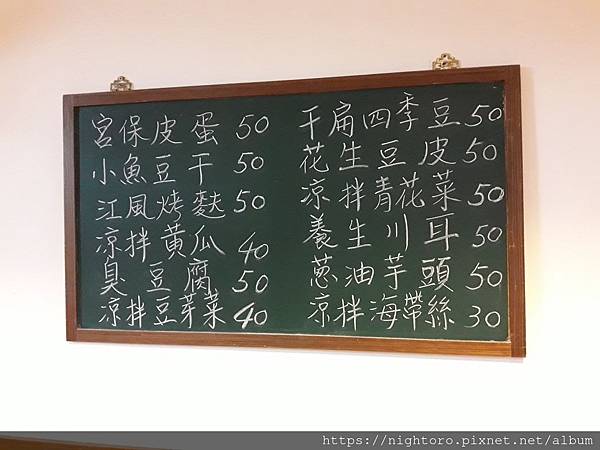 宮保皮蛋 50
小魚豆干 50
江風烤麩 50
涼拌黃瓜 40
臭豆腐 50
涼拌豆芽菜 40
干扁四季豆 50
花生豆皮 50
涼拌青花菜 50
養生川耳 50
蔥油芋頭 50
涼拌海帶絲 30
https://nightoro.pixnet.net/album